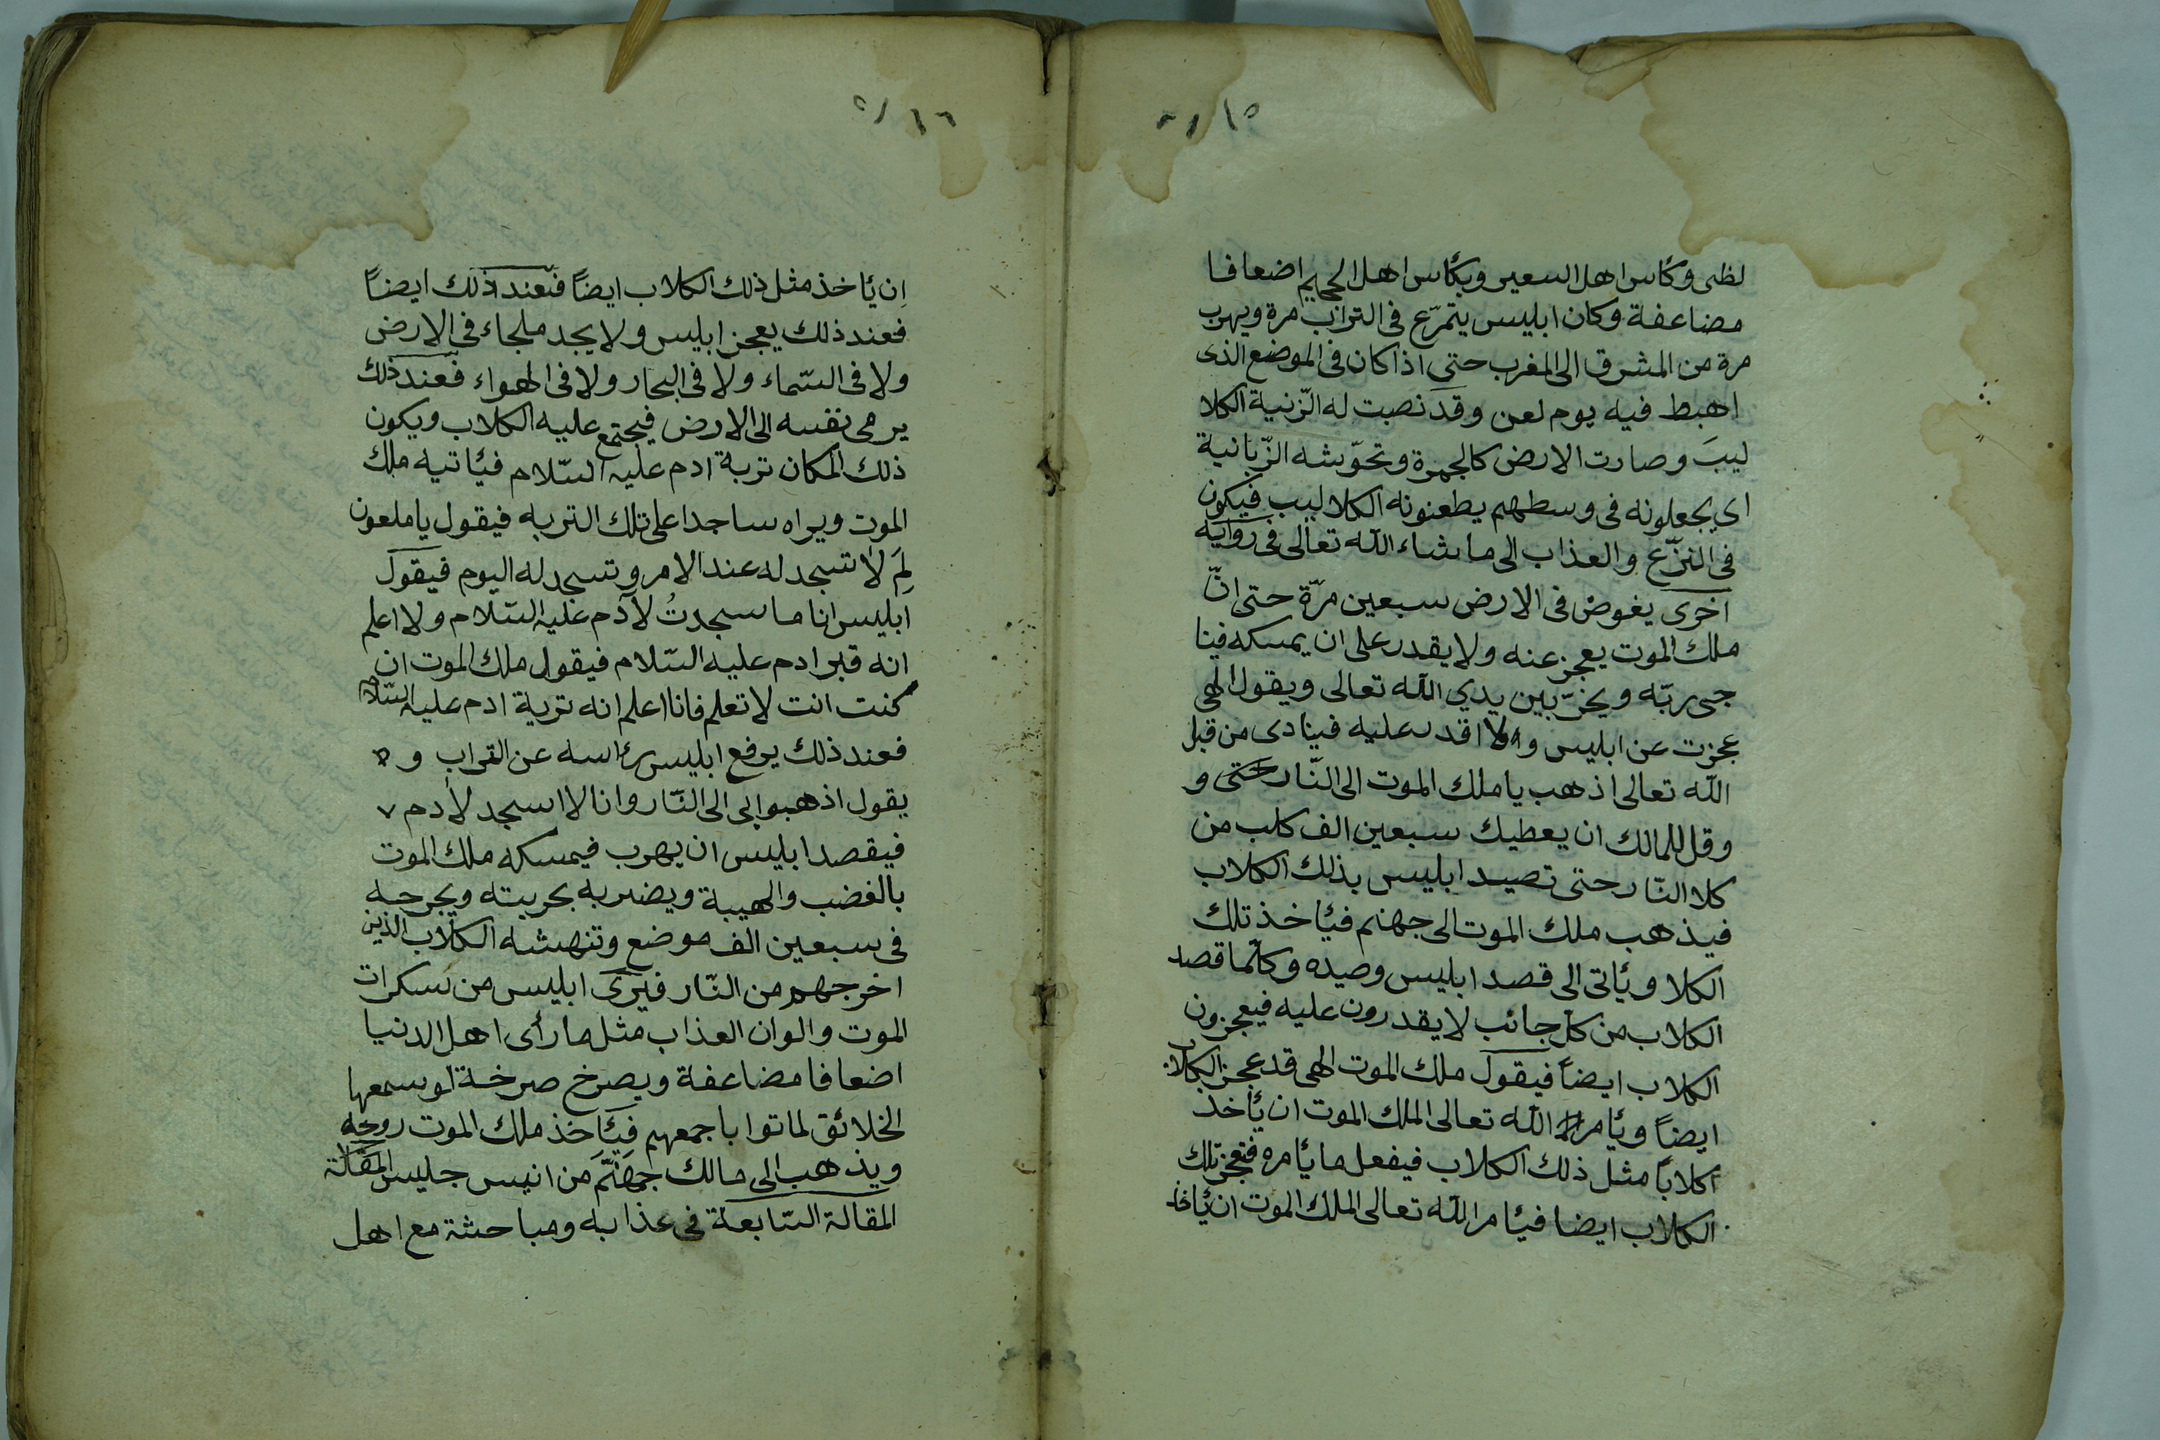 ١٥
لظى وكأس اهل السعير وبكأس اهل الجحيم اضعافا
مضاعفة وكان ابليس يتمرّع فى التراب مرة ويهرب
مرة من المشرق الى المغرب حتى اذا كان فى الموضع الذى
اهبط فيه يوم لعن وقد نصبت له الزّنية الكلا
ليبَ وصارت الارض كالجمرة وتحوّشه الزّبانية
اى يجعلونه فى وسطهم يطعنونه الكلاليب فيكون
فى النزّع والعذاب الى ما شاء اللّه تعالى فى رواية
اخرى يغوض فى الارض سبعين مرّة حتى انّ
ملك الموت يعجز عنه ولا يقدر على ان يمسكه فينا
جى ربّه ويخرّ بين يدي اللّه تعالى ويقول الهى
عجزت عن ابليس ولا اقدر عليه فينادى من قبل
اللّه تعالى اذهب يا ملك الموت الى النّار حتى و
وقل للمالك ان يعطيك سبعين الف كلب من
كلا النّار حتى تصيد ابليس بذلك الكلاب
فيذهب ملك الموت الى جهنم فيأخذ تلك
الكلا ويأتى الى قصد ابليس وصيده وكلّما قصد
الكلاب من كلّ جانب لا يقدرون عليه فيعجزون
الكلاب ايضاً فيقول ملك الموت الهى قد عجز الكلاب
ايضاً ويأمر اللّه تعالى الملك الموت ان يأخذ
اكلاباً مثل ذلك الكلاب فيفعل ما يأمره فتعجز تلك
الكلاب ايضا فيأمر اللّه تعالى الملك الموت ان يأخذ
١٦
اِن يأخذ مثل ذلك الكلاب ايضاً فعند ذلك ايضاً
فعند ذلك يعجز ابليس ولا يجد ملجاء فى الارض
ولا فى السّماء ولا فى البحار ولا فى الهواء فعند ذلك
يرمى نفسه الى الارض فيجتمع عليه الكلاب ويكون
ذلك المكان تربة ادم عليه السّلام فيأتيه ملك
الموت ويراه ساجدا على تلك التربه فيقول يا ملعون
لِمَ لا تسجد له عند الامر وتسجد له اليوم فيقول
ابليس انا ما سجدتُ لآدم عليه السّلام ولا اعلم
انه قبر ادم عليه السّلام فيقول ملك الموت ان
كنت انت لا تعلم فانا اعلم انه تربة ادم عليه السّلام
فعند ذلك يرفع ابليس رأسه عن القراب و
يقول اذهبوا بى الى النّار وانا لا اسجد لأدم
فيقصد ابليس ان يهرب فيمسكه ملك الموت
بالغضب والهيبة ويضربه بحربته ويجرحه
فى سبعين الف موضع وتنهشه الكلاب الذين
اخرجهم من النّار فيرى ابليس من سكرات
الموت والوان العذاب مثل ما رأى اهل الدنيا
اضعافا مضاعفة ويصرخ صرخة لو سمعها
الخلائق لماتوا باجمعهم فيأخذ ملك الموت روحه
ويذهب الى مالك جهنّم من انيس جليس المقالة
المقالة السّابعة فى عذابه ومباحثة مع اهل